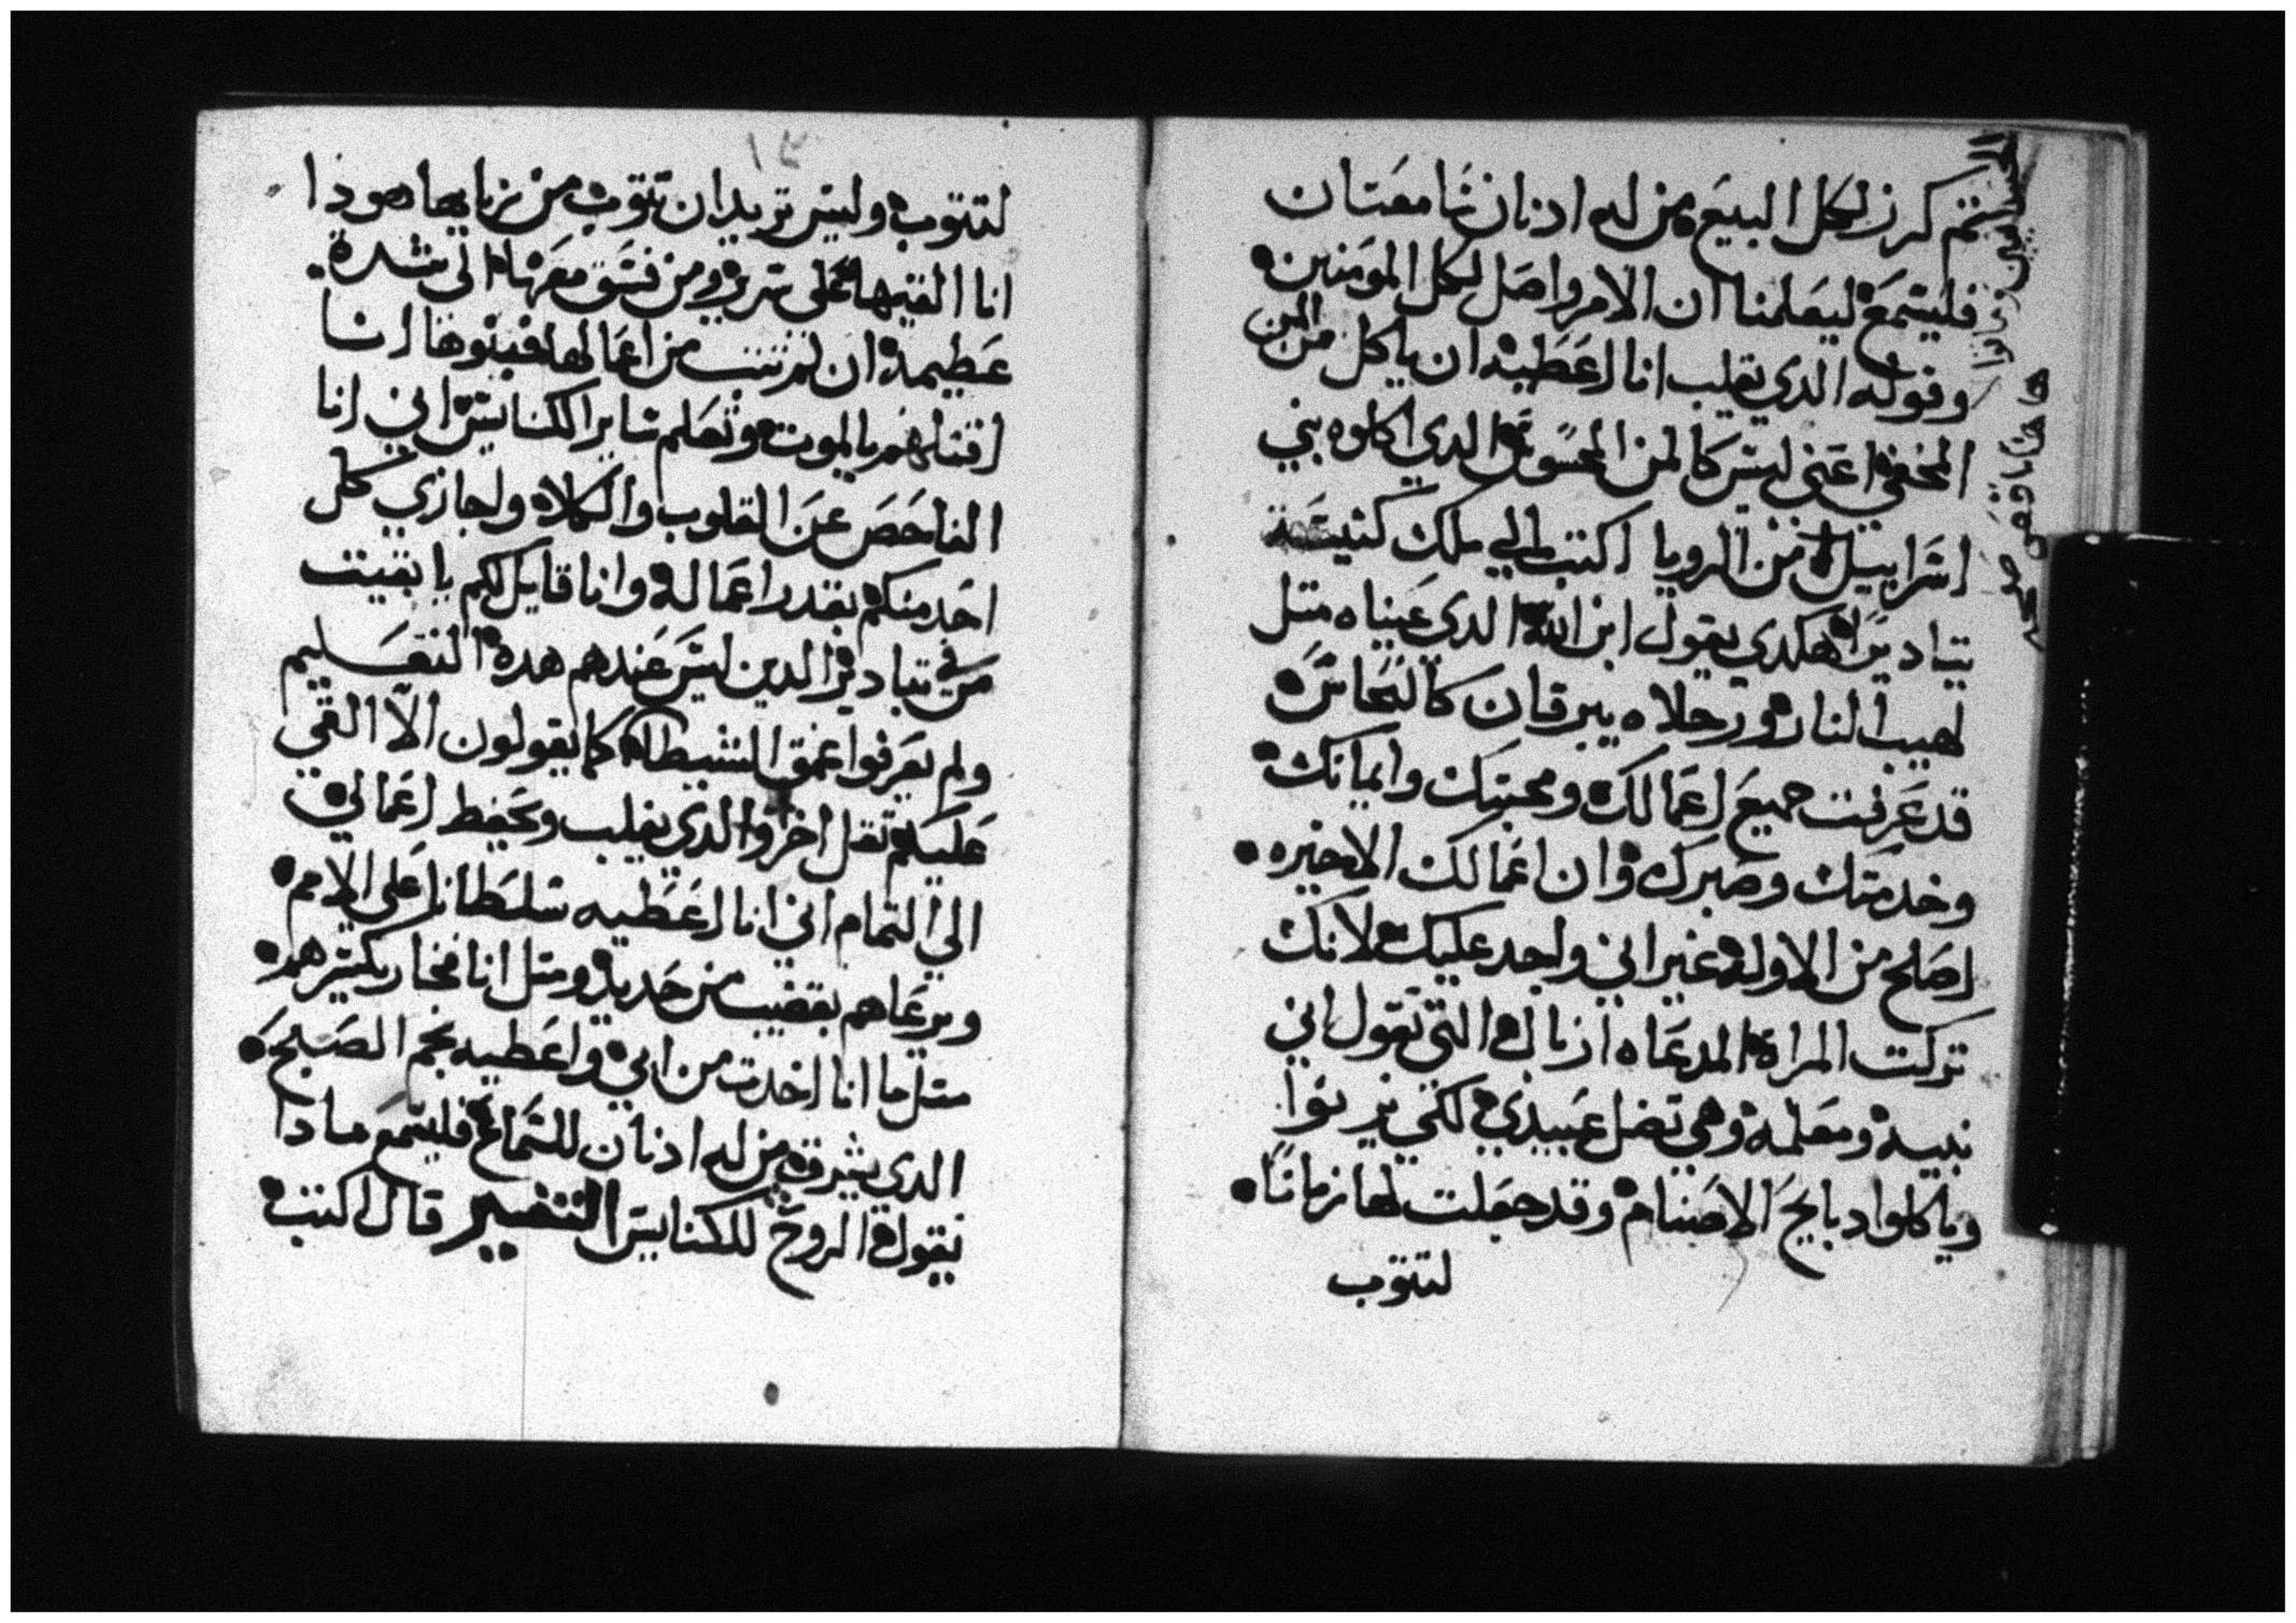 ثم كرز لكل البيع من له ادنان سامعتان
فليسمع ليعلمنا ان الامر واصل لكل المومنين
وقوله الدي يغلب انا اعطيه ان ياكل من المن
المخفي اعني ليس كالمن المحسوس الدي اكلوه بني
اسراييل من الرويا اكتب الي ملك كنيسة
تيادير هكدي يقول ابن الله الدي عيناه متل
لهيب النار ورجلاه يبرقان كالنحاس
قد عرفت جميع اعمالك ومحبتك وايمانك
وخدمتك وصبرك وان اعمالك الاخيره
اصلح من الاوله غير اني واجد عليك لانك
تركت المراة المدعاه ازبال التي تقول اني
نبيه ومعلمه وهي تضل عبيدي لكي يزنوا
وياكلوا دبايح الاصنام وقد جعلت لها زمانا
لتتوب
لتتوب وليس تريد ان تتوب من زناها هودا
انا القيها على سرير ومن فسق معها الى شدة
عظيمة ان لم تتب من اعمالها وبنوها انا
اقتلهم بالموت وتعلم ساير الكنايس اني انا
الفاحص عن القلوب والكلاه واجازي كل
احد منكم بقدر اعماله وانا قايل لكم يا بقيت
من في تيادير الدين ليس عندهم هده التعليم
ولم يعرفوا عمق الشيطان كما يقولون الا القي
عليكم تقل اخر والدي يغلب ويحفظ اعمالي
الي التمام اني انا اعطيه سلطانا على الامم
ويرعاهم بقضيب من حديد ومتل انا فخار يكسرهم
متل ما انا اخدت من ابي واعطيه نجم الصبح
الدي يشرق من له ادنان للسماع فليسمع مادا
يقول الروح للكنايس التفسير قال اكتب